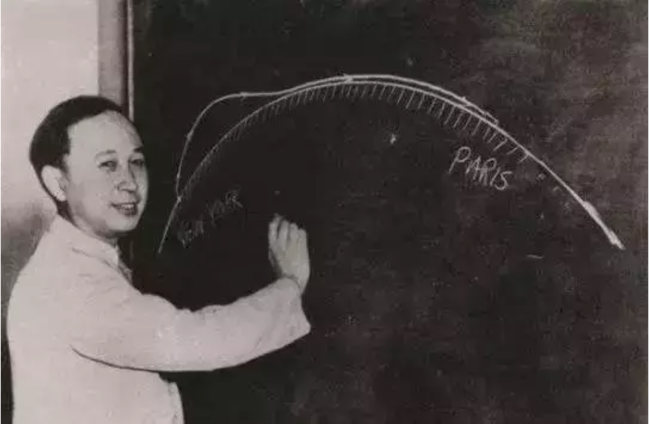 NEW YORK
PARIS